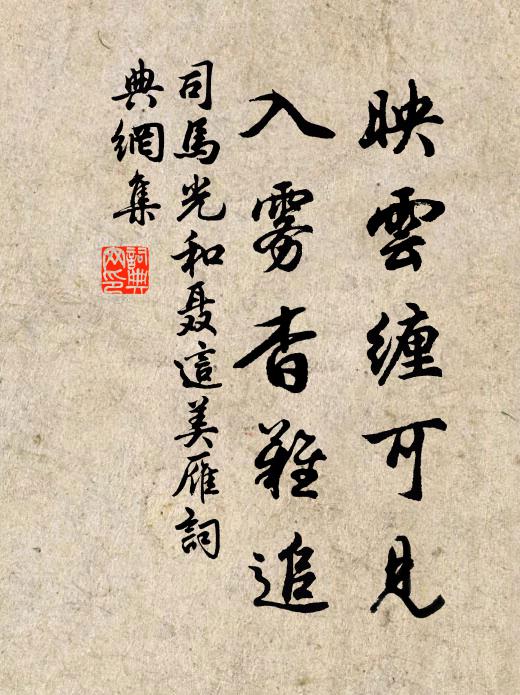 映雲纏可見
入霧杳難追
司馬光和聂這美雁詞
典網集
詞典
文印